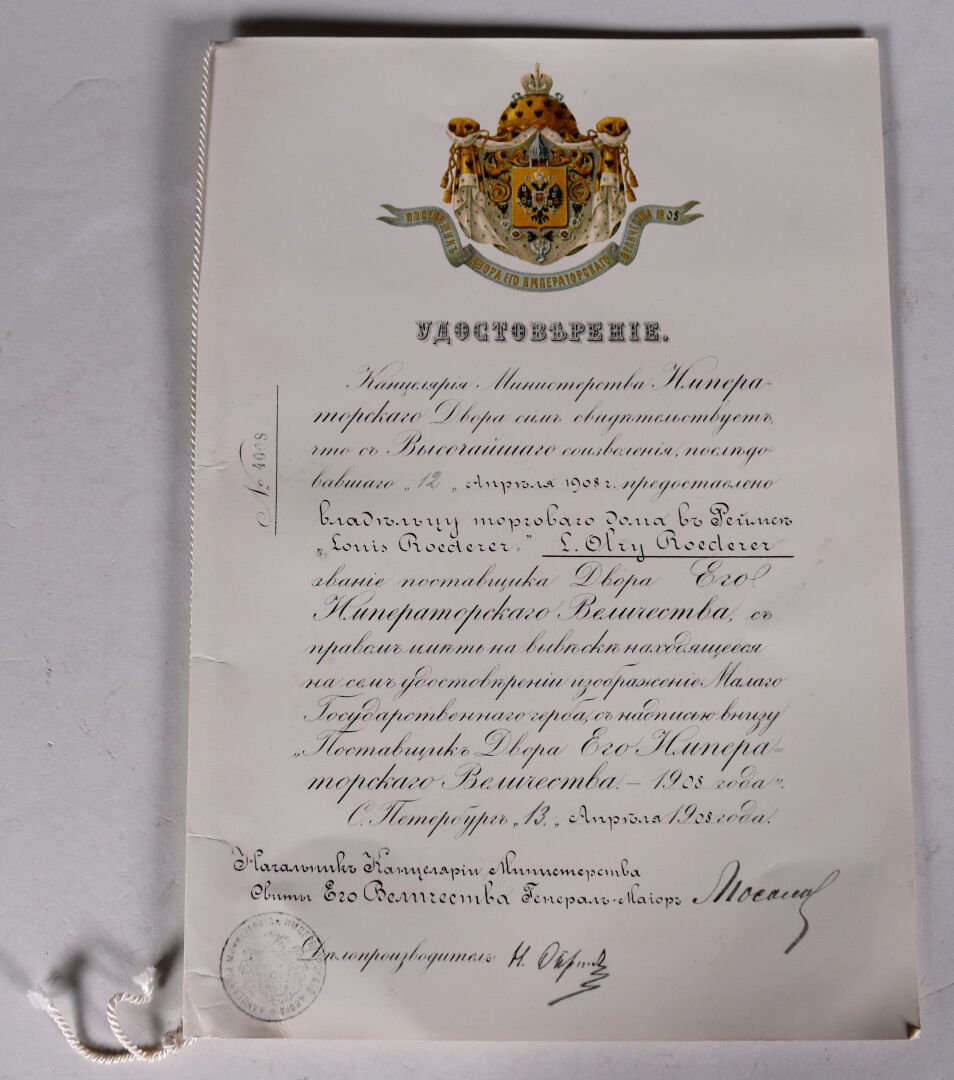 ПОСТАВЩИКЪ ДВОРА ЕГО ИМПЕРАТОРСКАГО ВЕЛИЧЕСТВА 1908
УДОСТОВѢРЕНІЕ.
Канцелярія Министерства Импера-
торскаго Двора симъ свидѣтельствуетъ,
что съ Высочайшаго соизволенія, послѣдо-
вавшаго „12„ Апрѣля 1908 г. предоставлено
владѣльцу торговаго дома въ Реймсѣ
„Louis Roederer.” L. Olry Roederer
званіе поставщика Двора Его
Императорскаго Величества, съ
правомъ имѣть на вывѣскѣ находящееся
на семъ удостовѣреніи изображеніе Малаго
Государственнаго герба, съ надписью внизу
„Поставщикъ Двора Его Импера-
торскаго Величества. – 1908 года”.
С. Петербургъ „13„ Апрѣля 1908 года.
№ 4008
Начальникъ Канцеляріи Министерства
Свиты Его Величества Генералъ-Маіоръ
Дѣлопроизводитель Н.